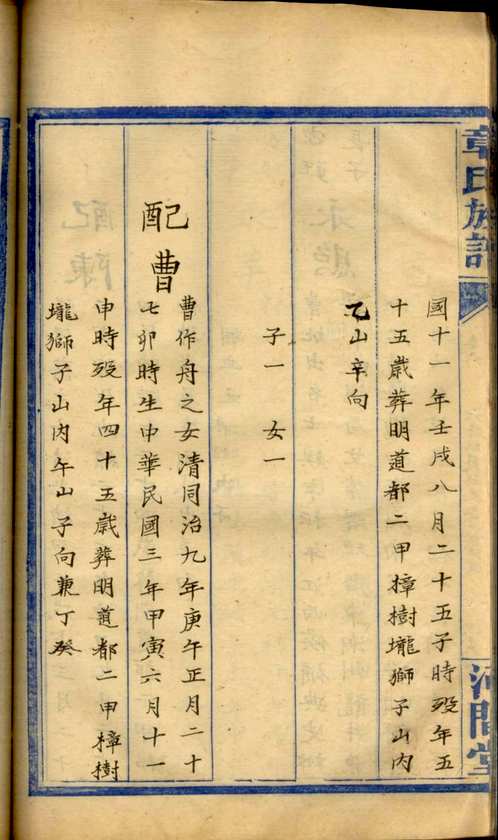 章氏族譜
河間堂
國十一年壬戌八月二十五子時殁年五
十五歲葬明道都二甲樟樹壠獅子山内
乙山辛向
子一 女一
配曹
曹作舟之女清同治九年庚午正月二十
七卯時生中華民國三年甲寅六月十一
申時殁年四十五歲葬明道都二甲樟樹
壠獅子山内午山子向兼丁癸